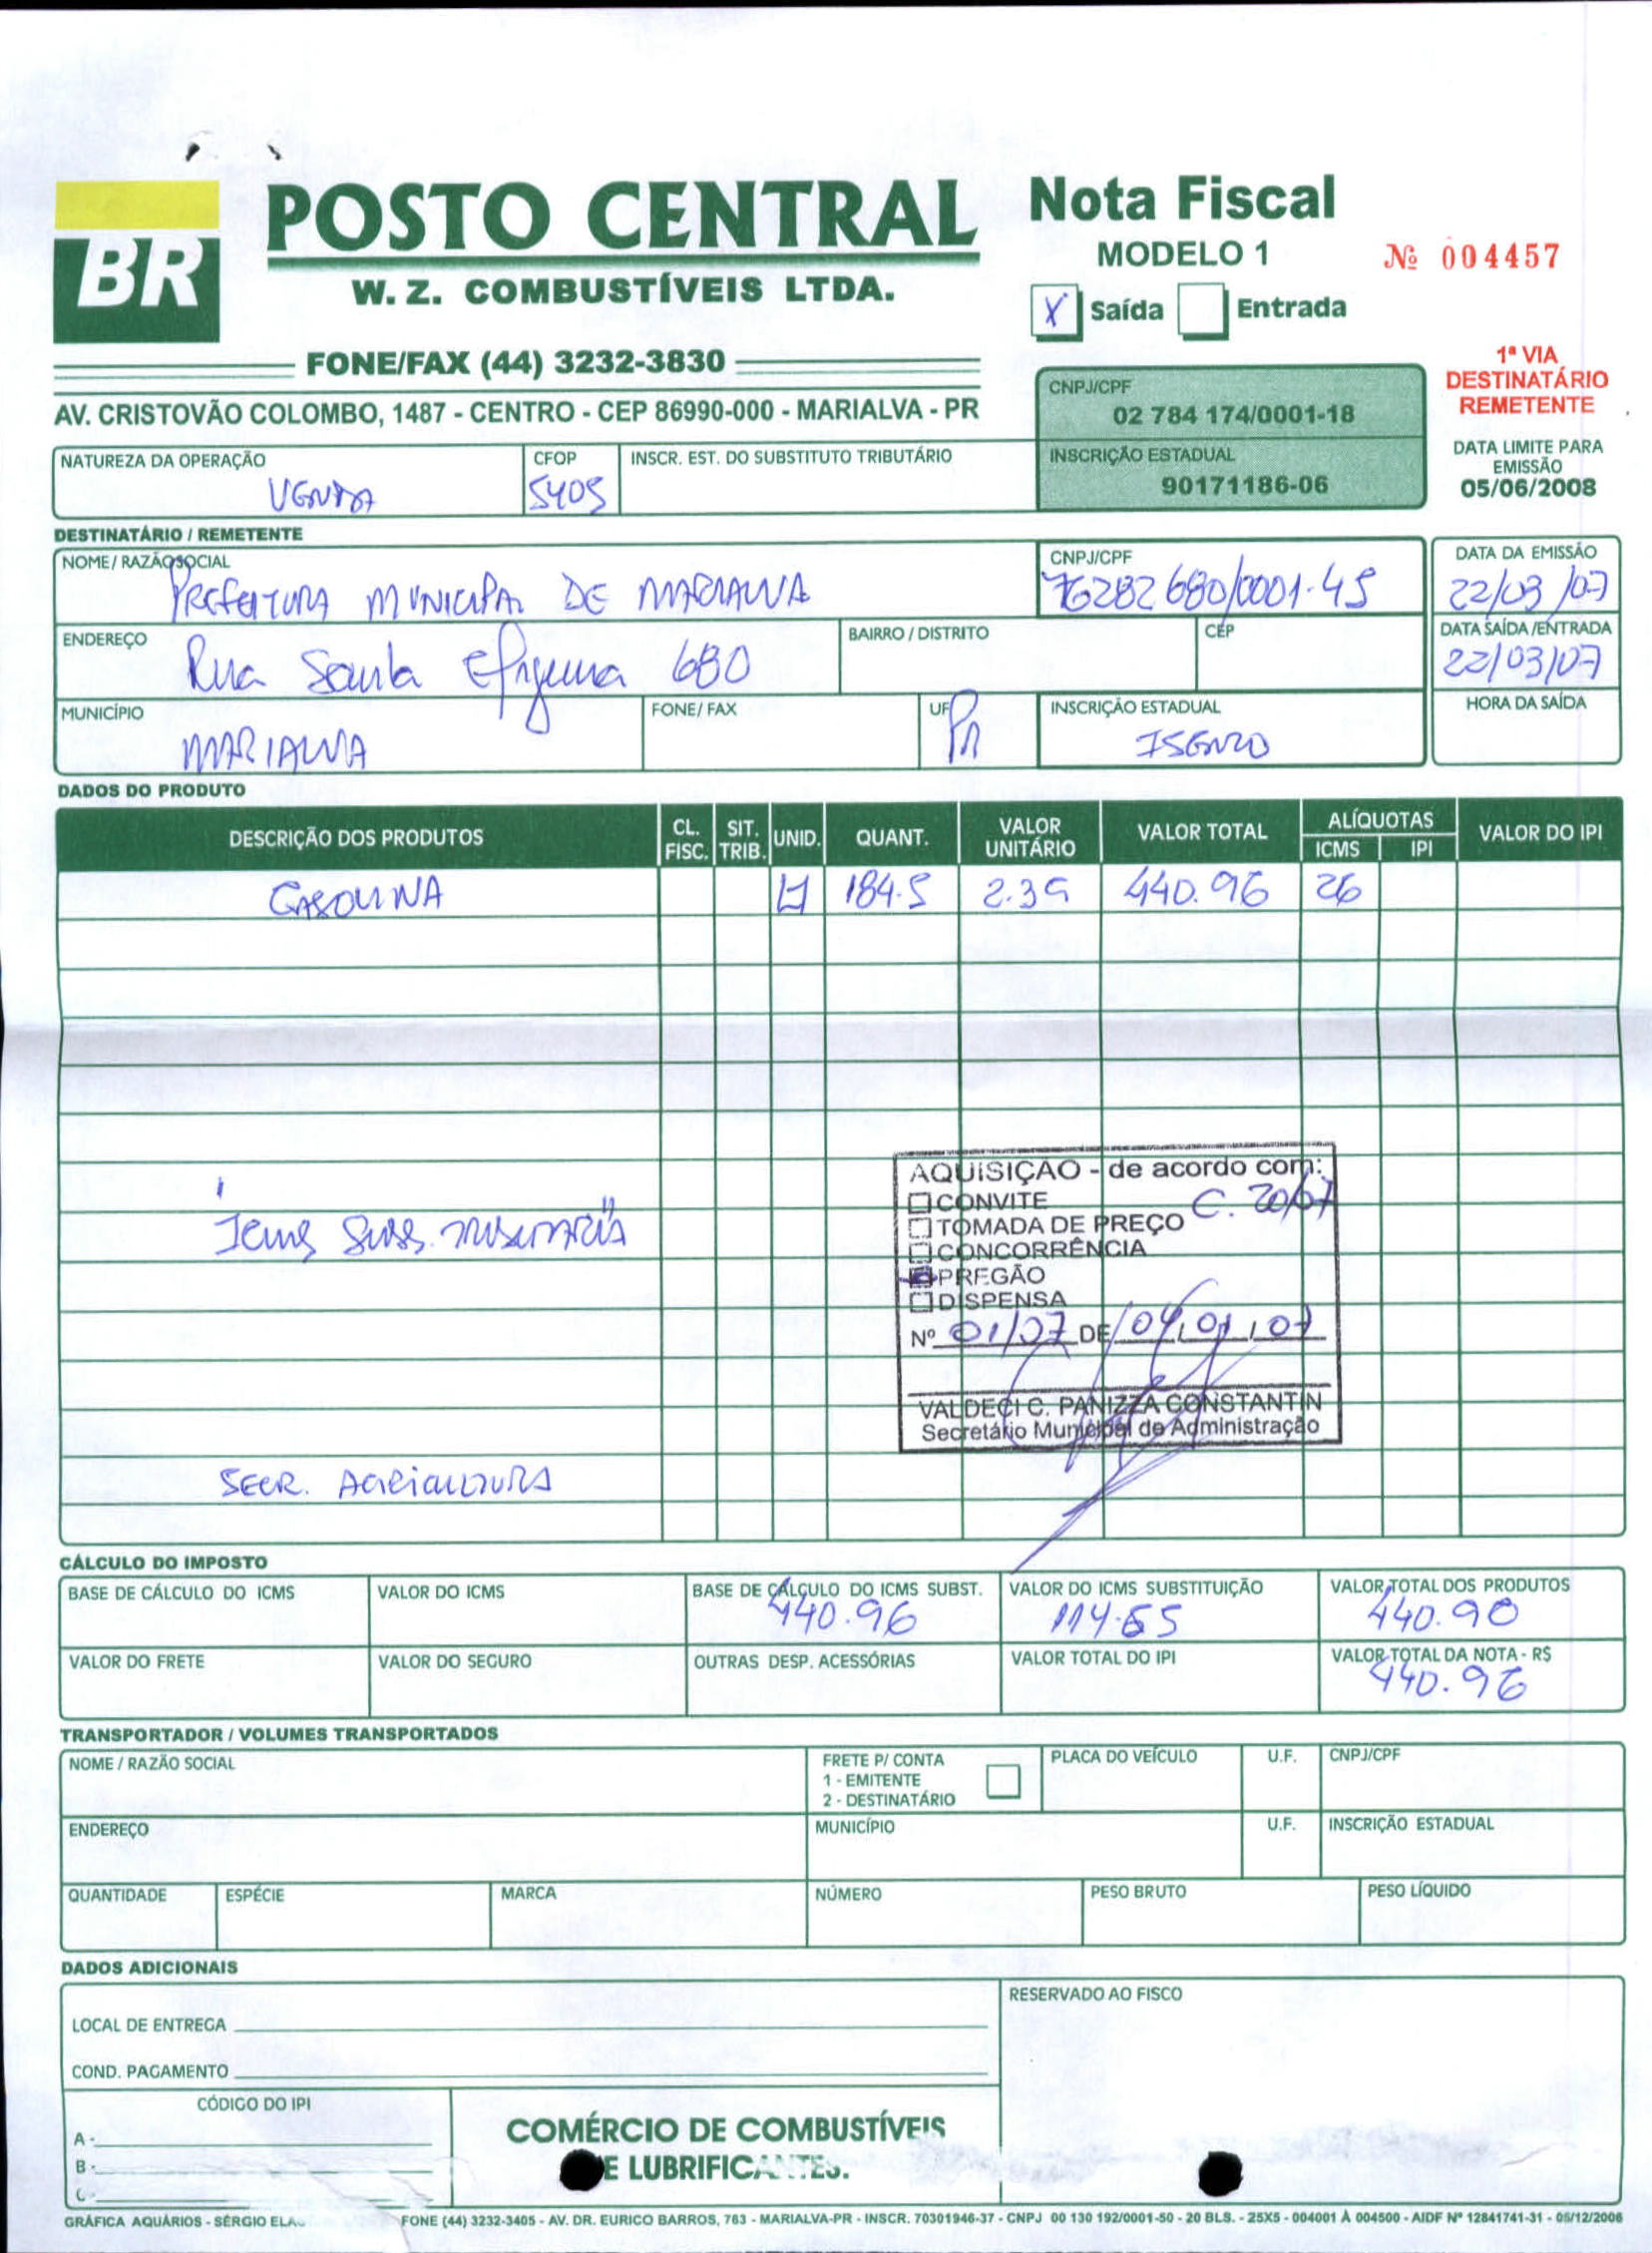 BR
POSTO CENTRAL
W. Z. COMBUSTÍVEIS LTDA.
FONE/FAX (44) 3232-3830
AV. CRISTOVÃO COLOMBO, 1487 - CENTRO - CEP 86990-000 - MARIALVA - PR
Nota Fiscal
MODELO 1
Nº 004457
X Saída Entrada
1ª VIA
DESTINATÁRIO
REMETENTE
CNPJ/CPF
02 784 174/0001-18
INSCRIÇÃO ESTADUAL
90171186-06
DATA LIMITE PARA
EMISSÃO
05/06/2008
NATUREZA DA OPERAÇÃO CFOP INSCR. EST. DO SUBSTITUTO TRIBUTÁRIO
VENDA 5405
DESTINATÁRIO / REMETENTE
NOME / RAZÃO SOCIAL CNPJ/CPF DATA DA EMISSÃO
PREFEITURA MUNICIPAL DE MARIALVA 76282680/0001-45 22/03/07
ENDEREÇO BAIRRO / DISTRITO CEP DATA SAÍDA/ENTRADA
Rua Santa Efigenia 680 22/03/07
MUNICÍPIO FONE / FAX UF INSCRIÇÃO ESTADUAL HORA DA SAÍDA
MARIALVA Pr ISENTO
DADOS DO PRODUTO
DESCRIÇÃO DOS PRODUTOS CL. FISC. SIT. TRIB. UNID. QUANT. VALOR UNITÁRIO VALOR TOTAL ALÍQUOTAS ICMS IPI VALOR DO IPI
GASOLINA LT 184.5 2.39 440.96 26
AQUISIÇÃO - de acordo com:
CONVITE C. 20/07
TOMADA DE PREÇO
CONCORRÊNCIA
PREGÃO
DISPENSA
Nº 01/07 DE 04/01/07
VALDECI C. PANIZZA CONSTANTIN
Secretário Municipal de Administração
Icms Subs.
SECR. AGRICULTURA
CÁLCULO DO IMPOSTO
BASE DE CÁLCULO DO ICMS VALOR DO ICMS BASE DE CÁLCULO DO ICMS SUBST. VALOR DO ICMS SUBSTITUIÇÃO VALOR TOTAL DOS PRODUTOS
440.96 114.65 440.90
VALOR DO FRETE VALOR DO SEGURO OUTRAS DESP. ACESSÓRIAS VALOR TOTAL DO IPI VALOR TOTAL DA NOTA - R$
440.96
TRANSPORTADOR / VOLUMES TRANSPORTADOS
NOME / RAZÃO SOCIAL FRETE P/ CONTA PLACA DO VEÍCULO U.F. CNPJ/CPF
1 - EMITENTE
2 - DESTINATÁRIO
ENDEREÇO MUNICÍPIO U.F. INSCRIÇÃO ESTADUAL
QUANTIDADE ESPÉCIE MARCA NÚMERO PESO BRUTO PESO LÍQUIDO
DADOS ADICIONAIS
LOCAL DE ENTREGA
COND. PAGAMENTO
RESERVADO AO FISCO
CÓDIGO DO IPI
A -
B -
C -
COMÉRCIO DE COMBUSTÍVEIS
E LUBRIFICANTES.
GRÁFICA AQUÁRIOS - SÉRGIO FONE (44) 3232-3405 - AV. DR. EURICO BARROS, 763 - MARIALVA-PR - INSCR. 70301946-37 - CNPJ 00 130 192/0001-50 - 20 BLS. - 25X5 - 004001 À 004500 - AIDF Nº 12841741-31 - 05/12/2006